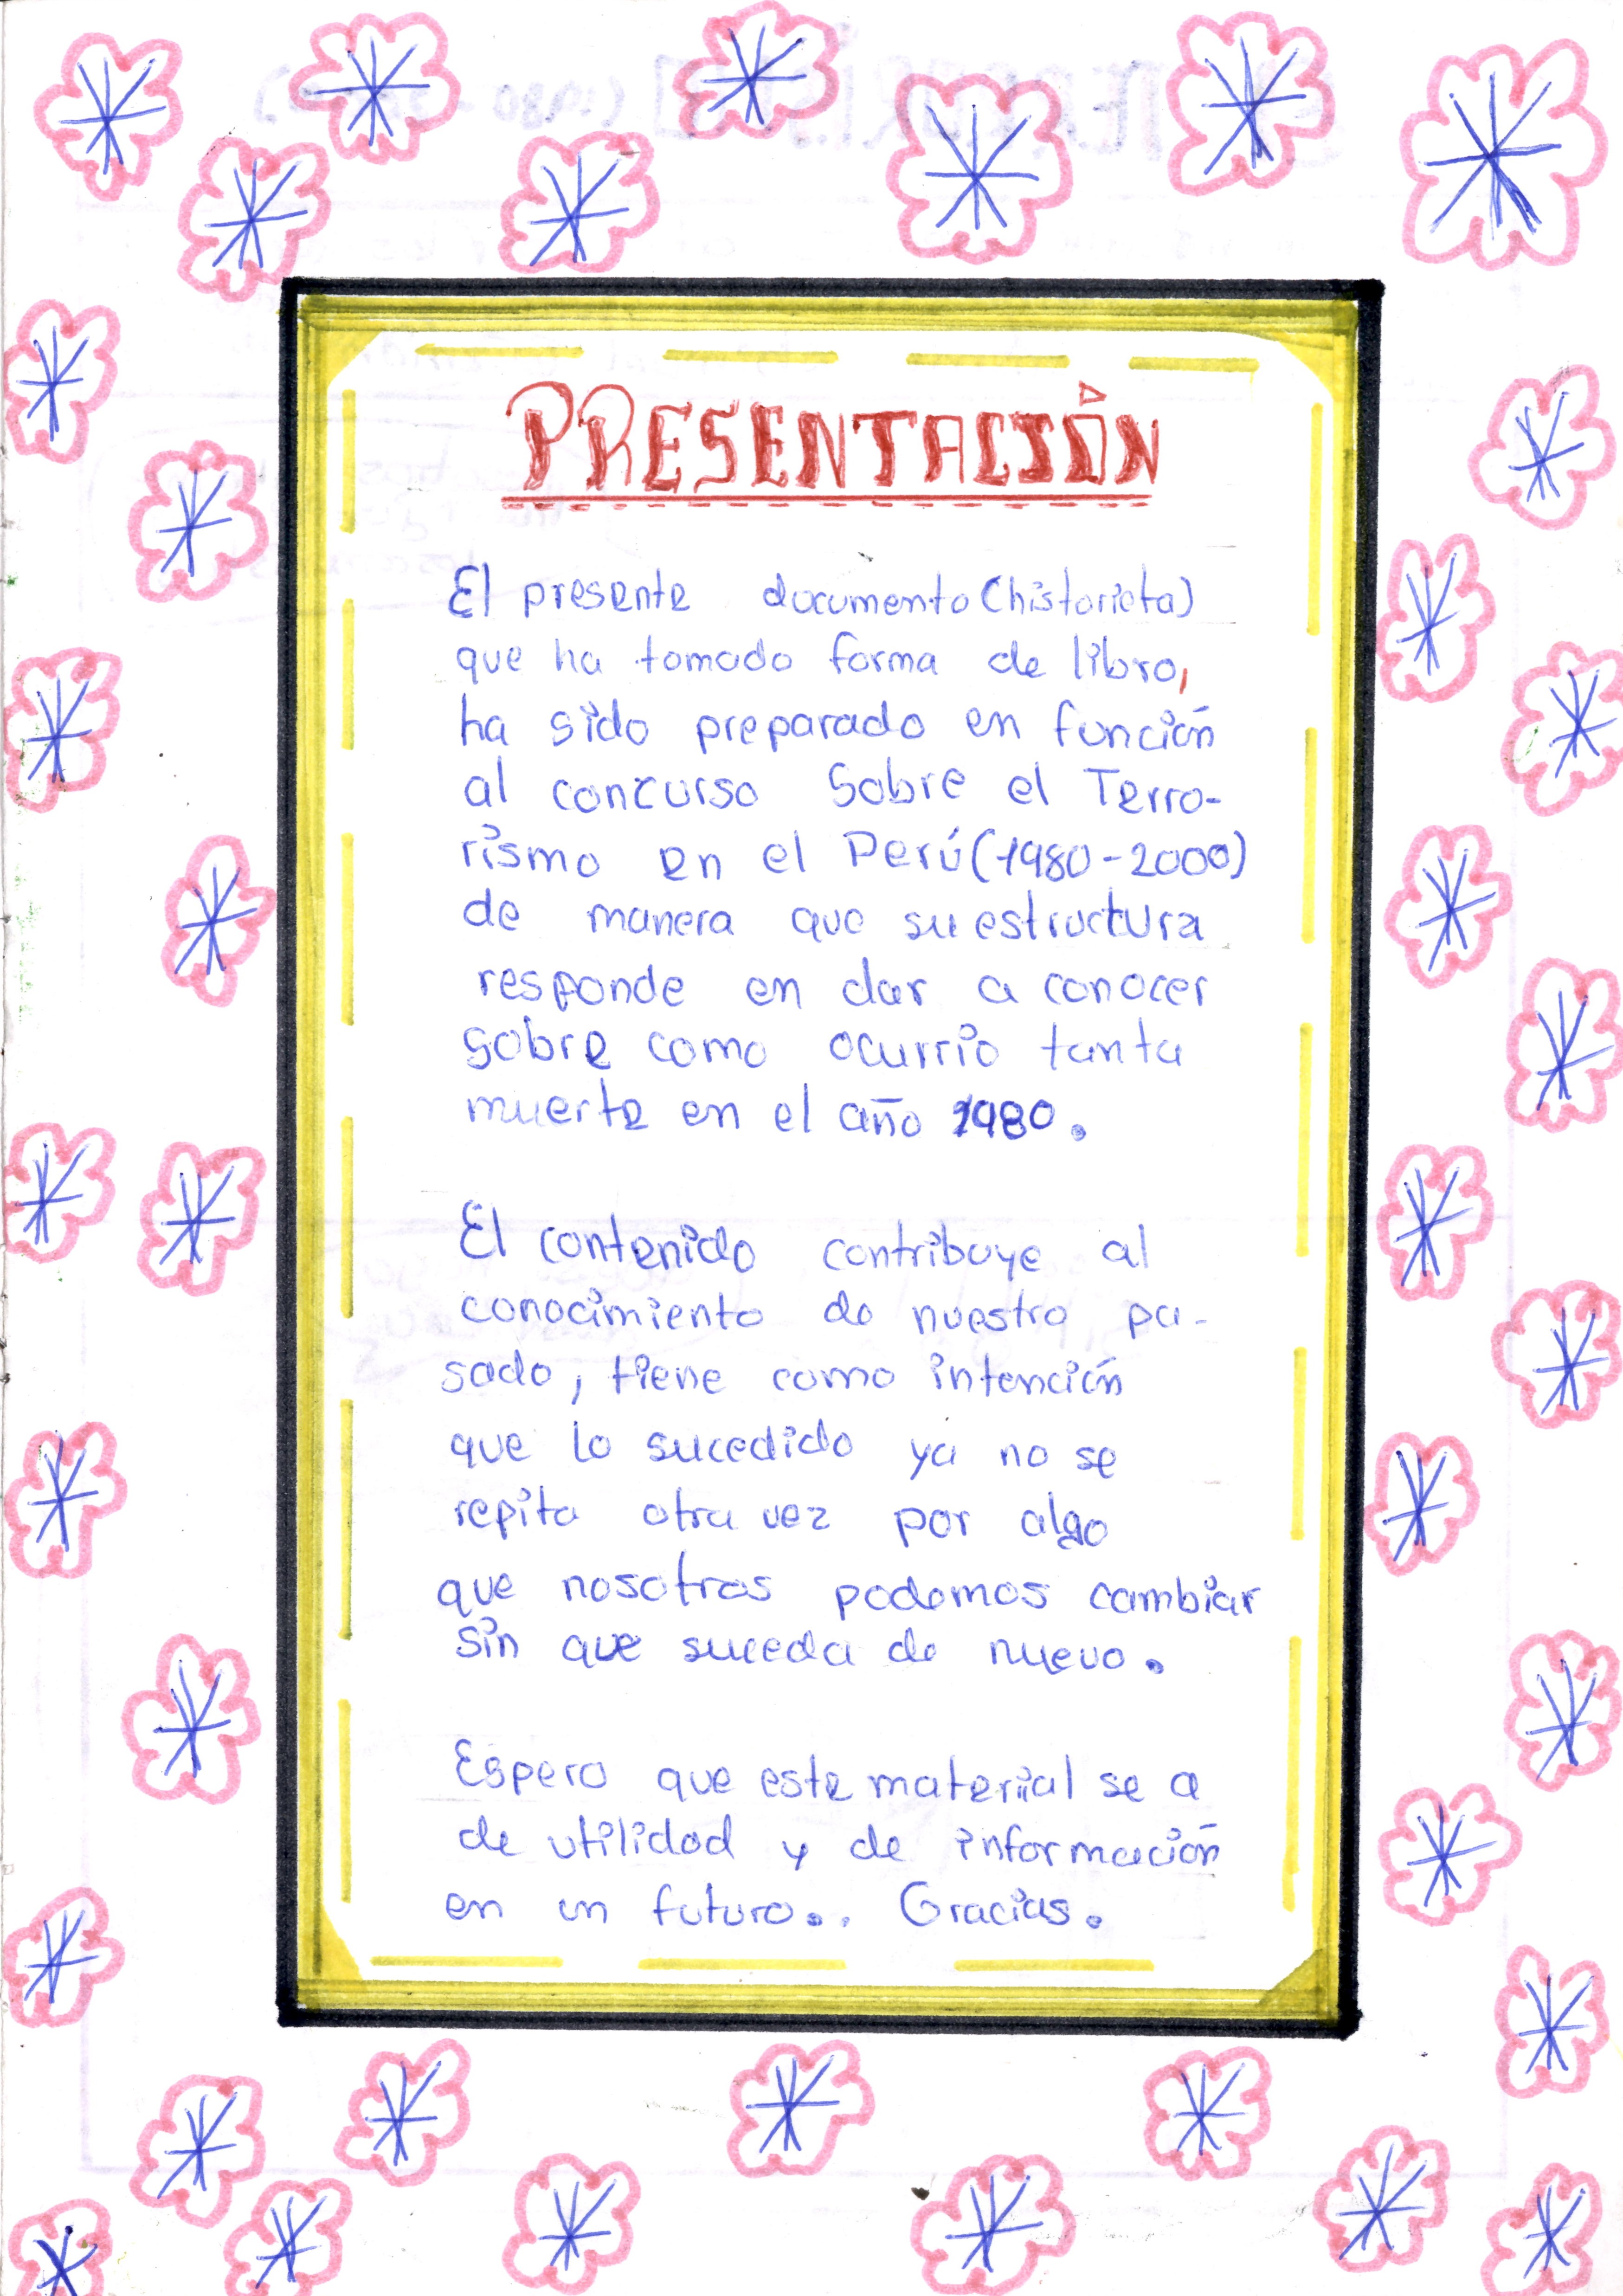 PRESENTACIÓN
El presente documento (historieta)
que ha tomado forma de libro,
ha sido preparado en función
al concurso Sobre el Terro-
rismo en el Perú (1980-2000)
de manera que su estructura
responde en dar a conocer
sobre como ocurrio tanta
muerte en el año 1980.
El contenido contribuye al
conocimiento de nuestro pa-
sado, tiene como intención
que lo sucedido ya no se
repita otra vez por algo
que nosotros podemos cambiar
sin que suceda de nuevo.
Espero que este material se a
de utilidad y de información
en un futuro.. Gracias.